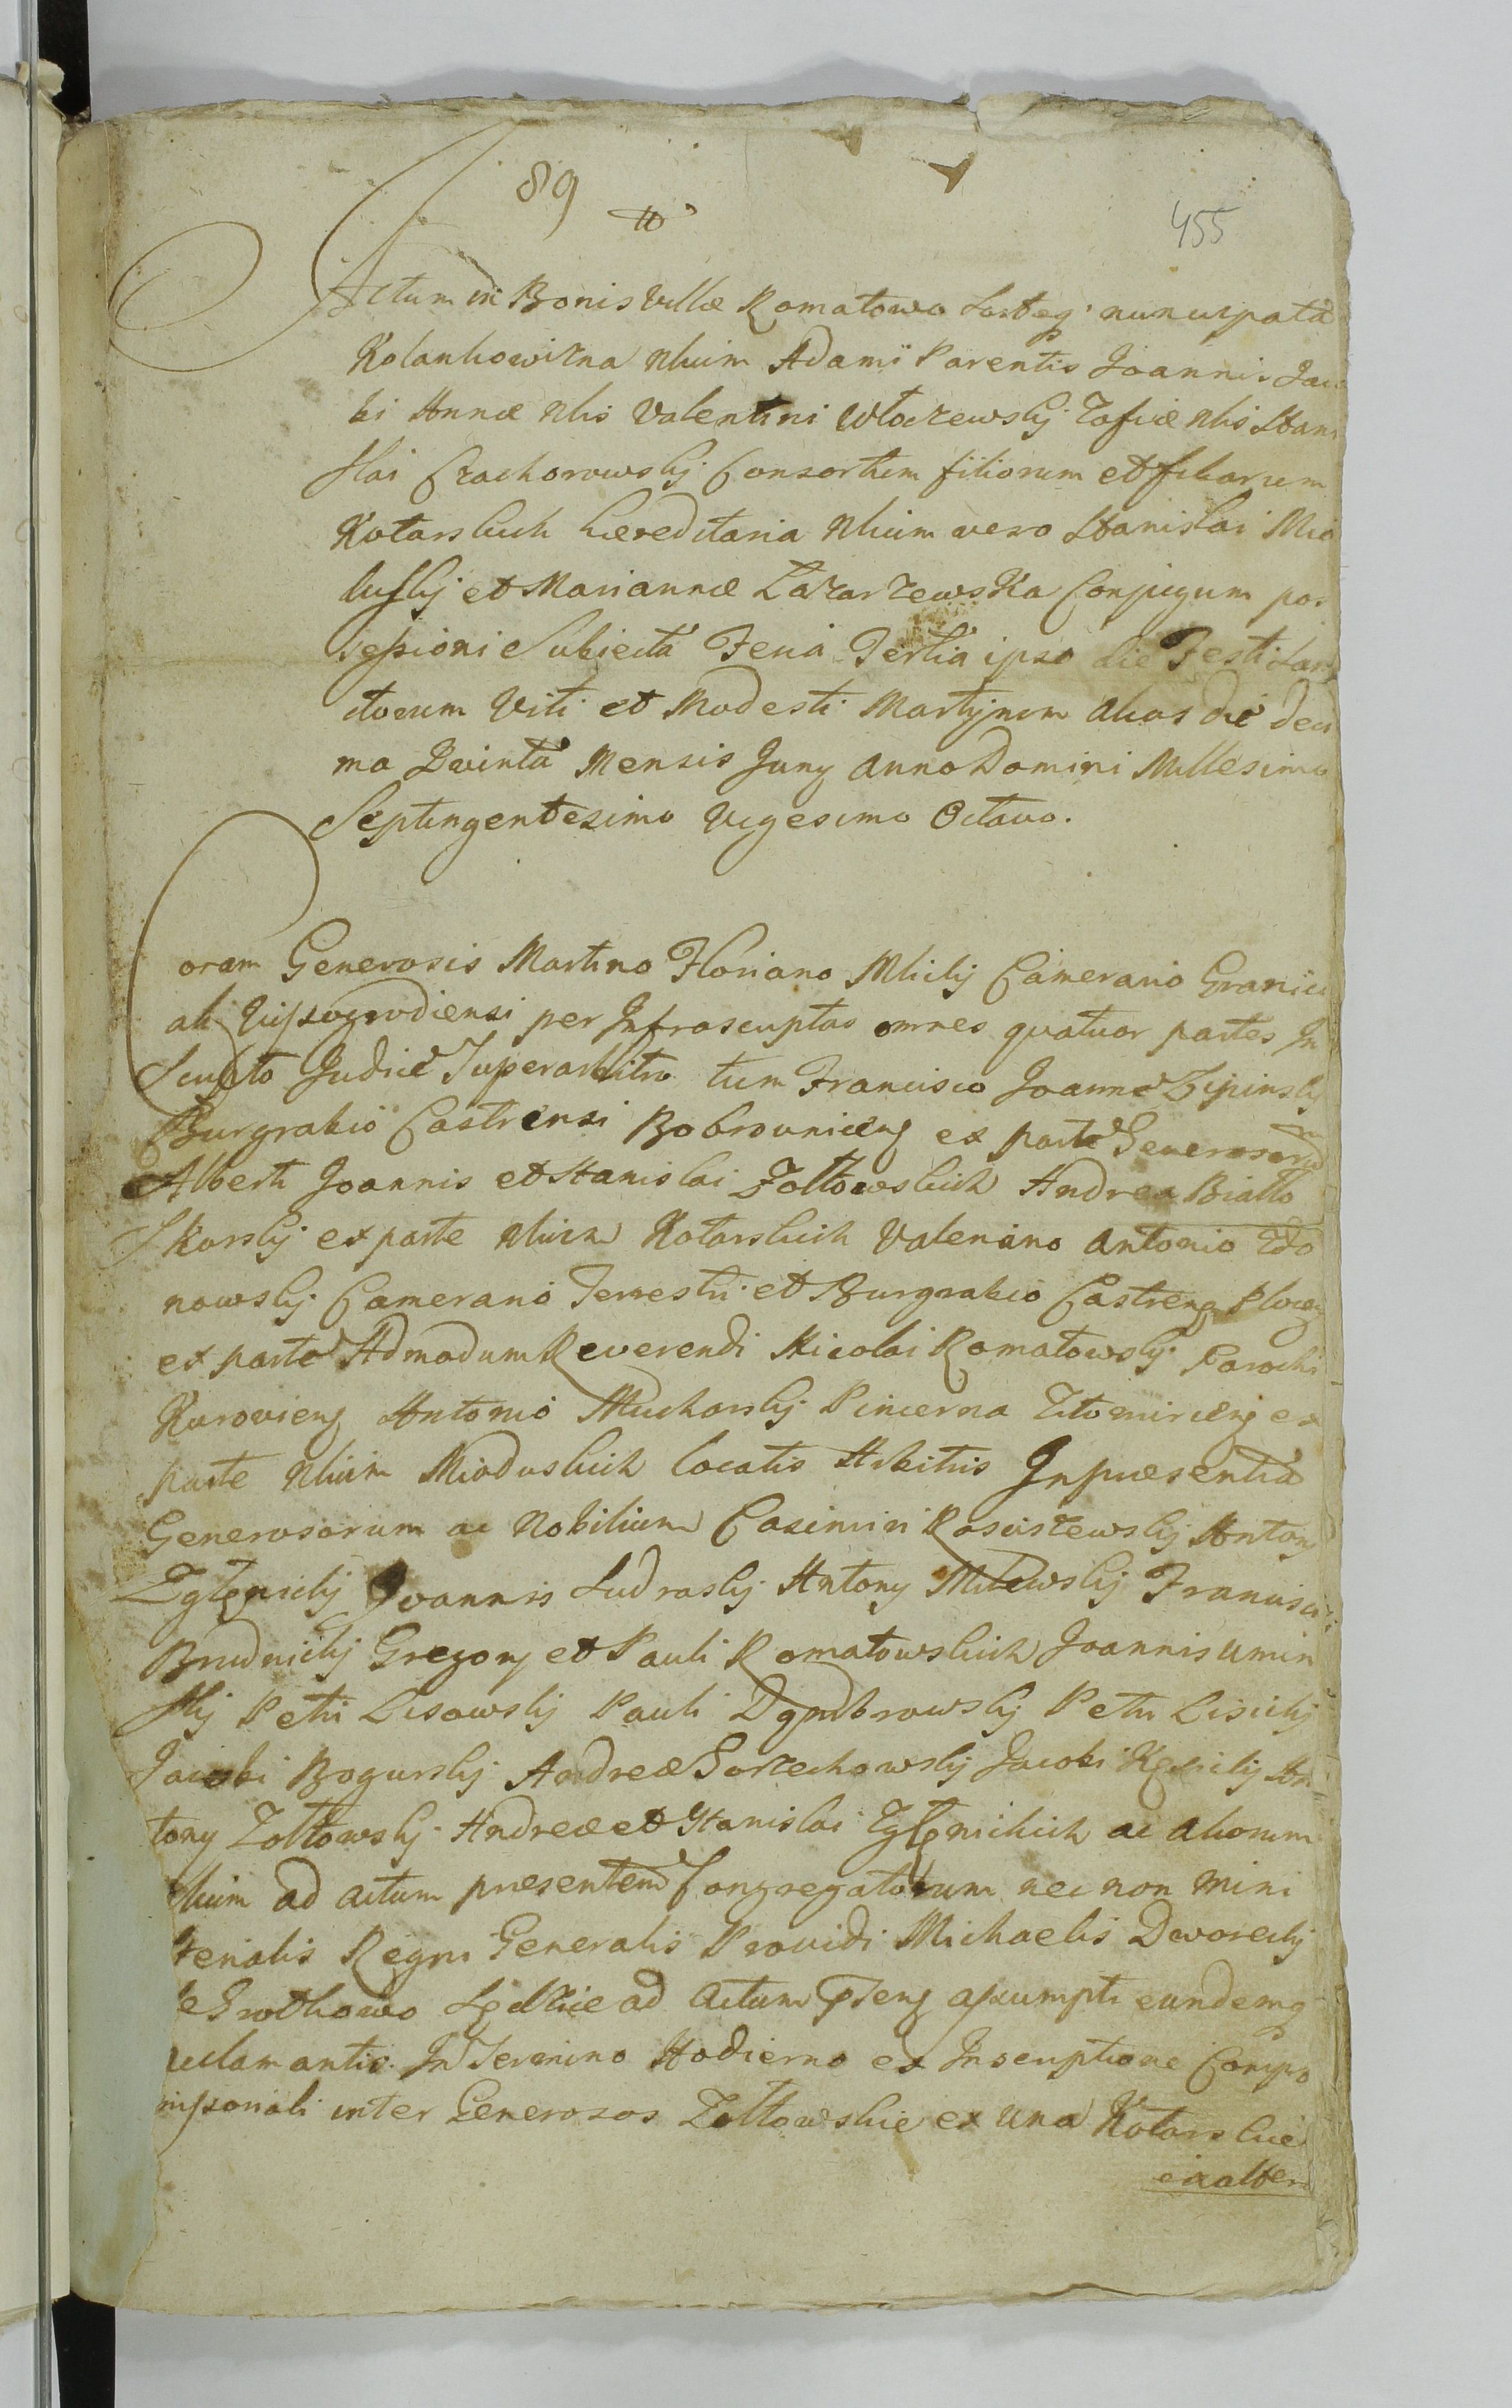 89
455
Actum in Bonis Villæ Romatowo Sorteq; nuncupata
Kolankowizna Nlium Adami Parentis Joannis Jaco
bi Annæ Nlis Valentini Włoczewskij Zofiæ Nlis Stani
slai Czachorowskij Consortum filiorum et filiarum
Kotarskich hæreditaria Nlium vero Stanislai Mio
duskij et Mariannæ Zakrzewska Conjugum pos
sessioni Subiecta Feria Tertia ipso die Festi San
ctorum Viti et Modesti Martyrum alias die deci
ma Quinta Mensis Juny Anno Domini Millesimo
Septingentesimo Vigesimo Octavo.
Coram Generosis Martino Floriano Mlicki Camerario Granici
ali Wyszogrodiensi per Infrascriptas omnes quatuor partes In
Scripto Judice Superarbitro tum Francisco Joanne Lipinskij
Burgrabio Castrensi Bobrovnicens ex parte Generosorum
Alberti Joannis et Stanislai Zołtowskich Andrea Biało
Skorskij ex parte Nlium Kotarskich Valeriano Antonio
nowskij Camerario Terrestri et Burgrabio Castrens Plocens
ex parte Admodum Reverendi Nicolai Romatowskij Parochi
Kuroviens Antonio Mucharskij Pincerna Zitomiriens ex
parte Nlium Mioduskich locatis Arbitris In præsentia
Generosorum ac Nobilium Casimiri Rosciszewskij Antony
Zglenickij Joannis Sudraskij Antony Milewskij Francisci
Brudnickij Gregorij et Pauli Romatowskich Joannis Umin
skij Petri Lisowskij Pauli Dąmbrowskij Petri Lisickij
Jacobi Bogurskij Andreæ Gorzechowskij Jacobi Kęsickij An
tony Zołtowskij Andreæ et Stanislai Zglenickich ac aliorum
Nlium ad actum præsentem Congregatorum nec non Mini
sterialis Regni Generalis Providi Michaelis Dworeckij
de Srotkowo Sędkie ad Actum Pñens assumpti eundemq
reclamantis. In Termino Hodierno ex Inscriptione Compro
missionali inter Generosos Zołtowskie ex una Kotarskie
ex altera